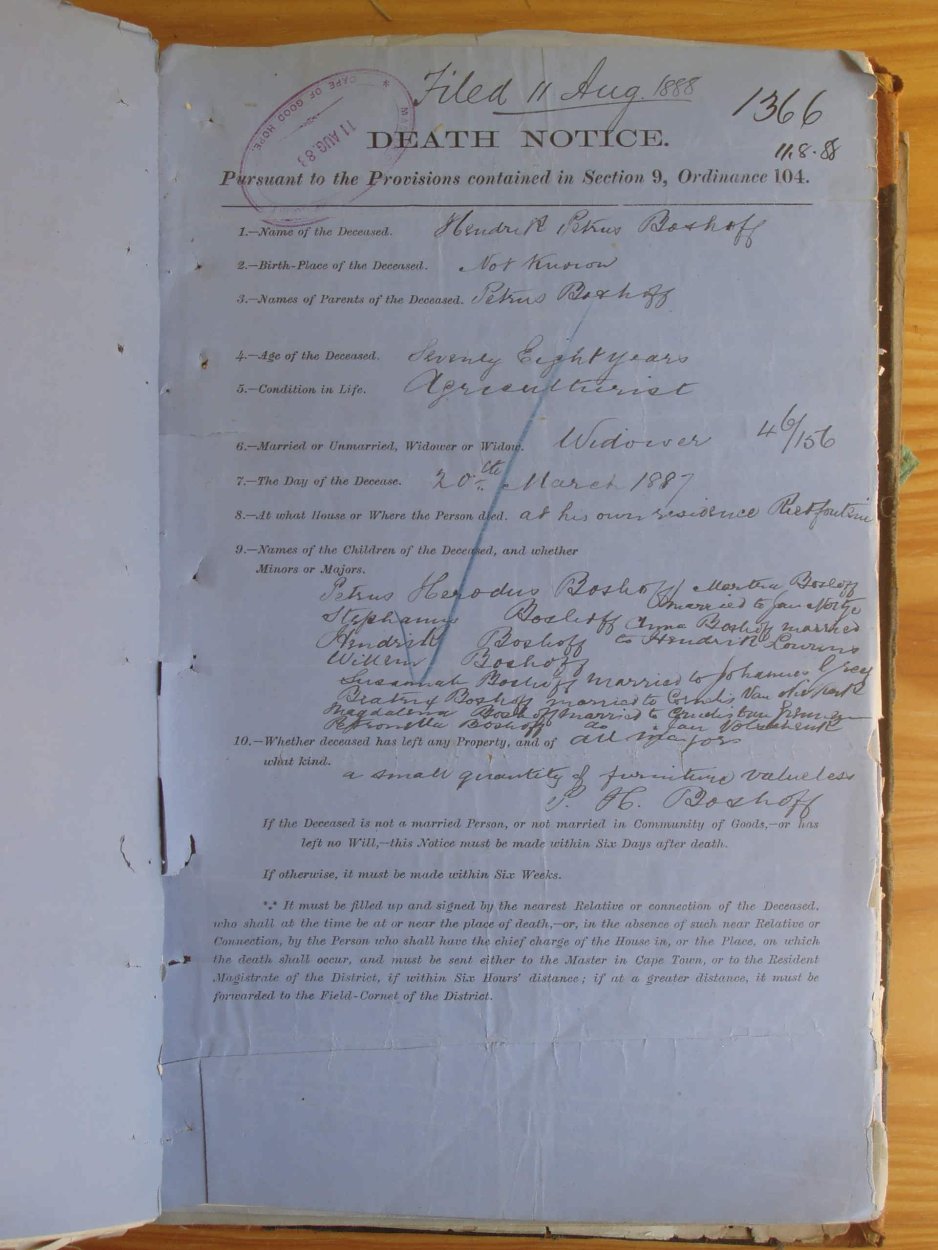 Filed 11 Aug. 1888
1366
CAPE OF GOOD HOPE
11 AUG. 8
DEATH NOTICE.
11.8.88
Pursuant to the Provisions contained in Section 9, Ordinance 104.
1.—Name of the Deceased. Hendrik Petrus Boshoff
2.—Birth-Place of the Deceased. Not Known
3.—Names of Parents of the Deceased. Petrus Boshoff
4.—Age of the Deceased. Seventy Eight years
5.—Condition in Life. Agriculturist
6.—Married or Unmarried, Widower or Widow. Widower 46/156
7.—The Day of the Decease. 20th March 1887
8.—At what House or Where the Person died. at his own residence Rietfontein
9.—Names of the Children of the Deceased, and whether
Minors or Majors.
Petrus Boshoff Martha Boshoff
married to Jan
Stephanus Boshoff Anna Boshoff married
Hendrik Boshoff to Hendrik
Willem Boshoff
Susannah Boshoff married to Johannes
Beatrix Boshoff married to Cornelis Van Niekerk
Magdalena Boshoff married to
Petronella Boshoff do Jan
10.—Whether deceased has left any Property, and of all majors
what kind.
a small quantity of furniture valueless
P. H. Boshoff
If the Deceased is not a married Person, or not married in Community of Goods,—or has
left no Will,—this Notice must be made within Six Days after death.
If otherwise, it must be made within Six Weeks.
*.* It must be filled up and signed by the nearest Relative or connection of the Deceased,
who shall at the time be at or near the place of death,—or, in the absence of such near Relative or
Connection, by the Person who shall have the chief charge of the House in, or the Place, on which
the death shall occur, and must be sent either to the Master in Cape Town, or to the Resident
Magistrate of the District, if within Six Hours' distance; if at a greater distance, it must be
forwarded to the Field-Cornet of the District.